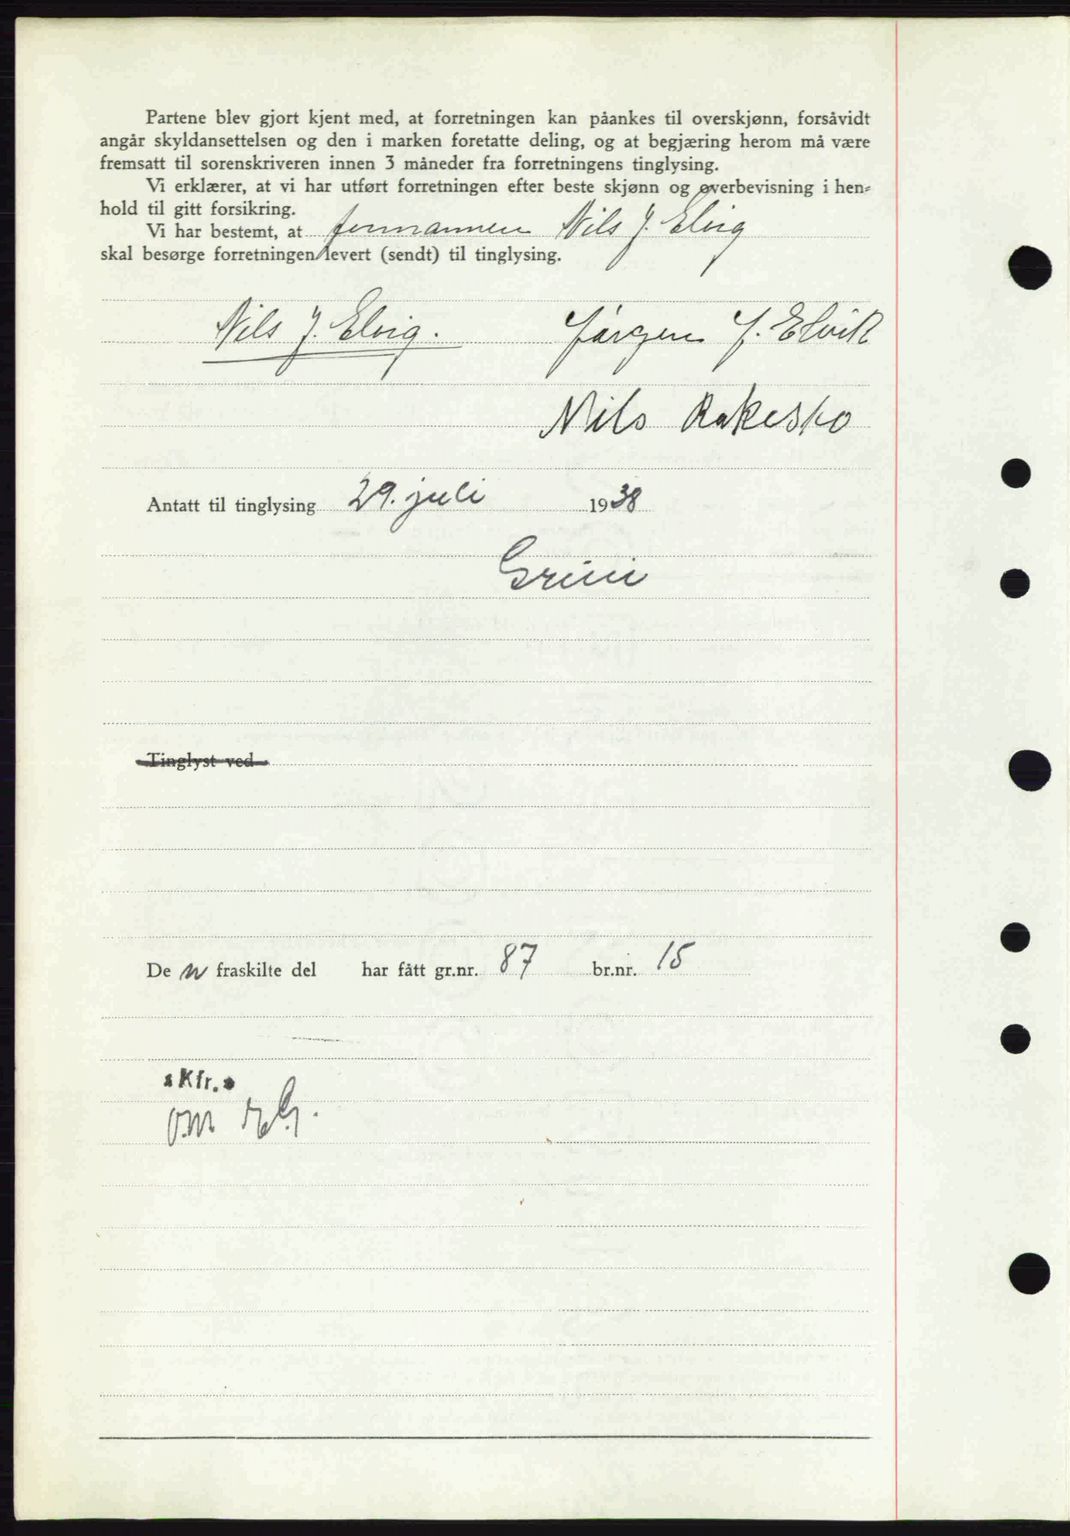 Partene blev gjort kjent med, at forretningen kan påankes til overskjønn, forsåvidt
angår skyldansettelsen og den i marken foretatte deling, og at begjæring herom må være
fremsatt til sorenskriveren innen 3 måneder fra forretningens tinglysing.
Vi erklærer, at vi har utført forretningen efter beste skjønn og overbevisning i hen=
hold til gitt forsikring.
Vi har bestemt, at formannen Nils J. Elvig
skal besørge forretningen levert (sendt) til tinglysing.
Nils J. Elvig. Jørgen J. Elvik
Nils Rakesko
Antatt til tinglysing 29. juli 1938
Tinglyst ved
De n fraskilte del har fått gr.nr. 87 br.nr. 15
Kfr.